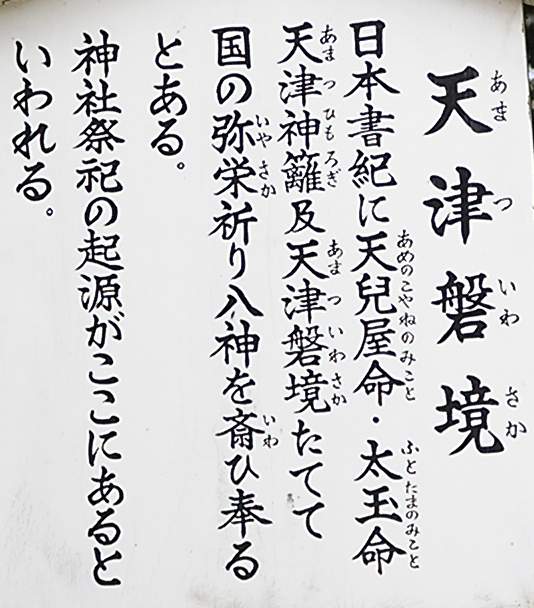 天津磐境
あまついわさか
日本書紀に天兒屋命・太玉命
あめのこやねのみこと ふとたまのみこと
天津神籬及天津磐境たてて
あまつひもろぎ あまついわさか
国の弥栄祈り八神を斎ひ奉る
いやさか いわ
とある。
神社祭祀の起源がここにあると
いわれる。